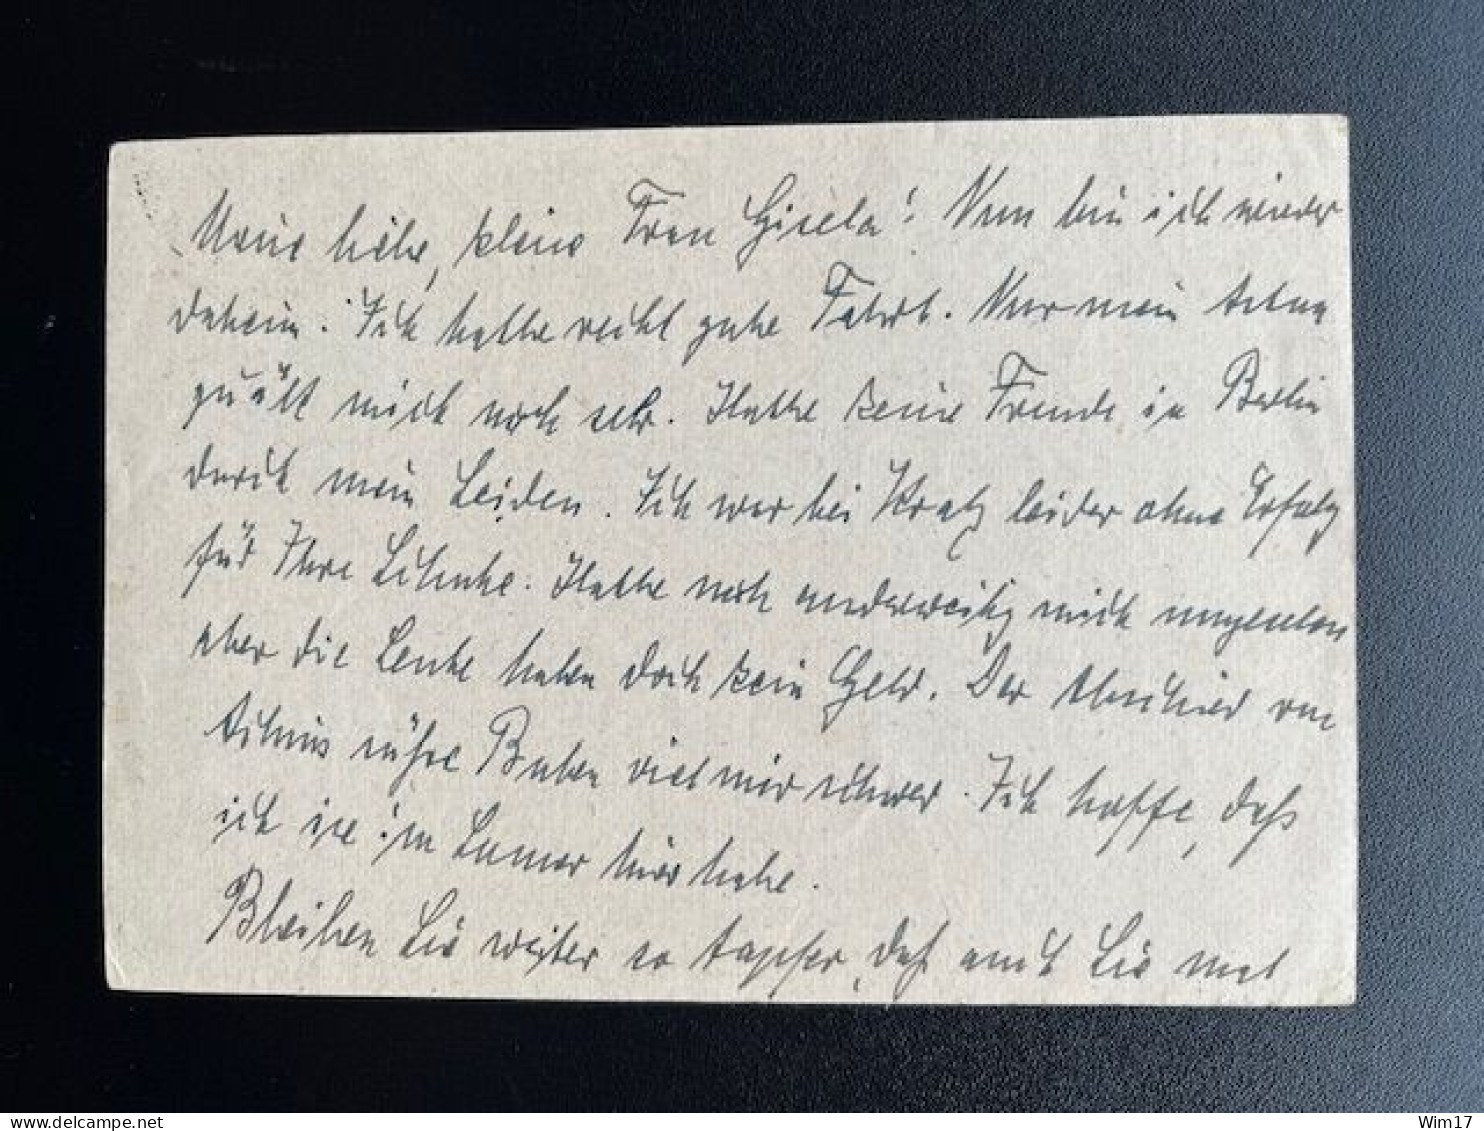 Meine liebe, kleine Frau Gisela! Nun bin ich wieder
daheim. Ich hatte recht gute Fahrt. Nur mein
quält mich noch sehr. Hatte keine Freude in Berlin
durch mein Leiden. Ich war bei Kratz leider ohne Erfolg
für Ihre. Hatte noch anderweitig mich umgesehen
aber die Leute haben doch kein Geld. Der Abschied von
Buben viel mir schwer. Ich hoffe, daß
ich sie im Sommer hier habe.
Bleiben Sie weiter so tapfer, daß auch Sie mal
Wim17